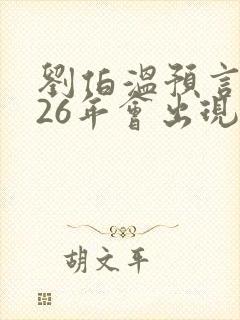 劉伯溫預言
26年會出現
胡文平